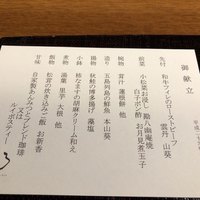 御献立
先付 和牛フィレのローストビーフ
雲丹 山葵
前菜 小松菜お浸し 勘八幽庵焼
白子ポン酢 お月見煮玉子
椀物 茸汁 蓮根餅 他
造り 五島列島の鮮魚 本山葵
揚物 秋鮭の博多揚げ 藻塩
小鉢 柿なますの胡麻クリーム和え
煮物 湯葉 里芋 大根 他
飯物 松茸の炊き込みご飯 お新香
甘味 自家製あんみつとブレンド珈琲
又は
ルイボスティー